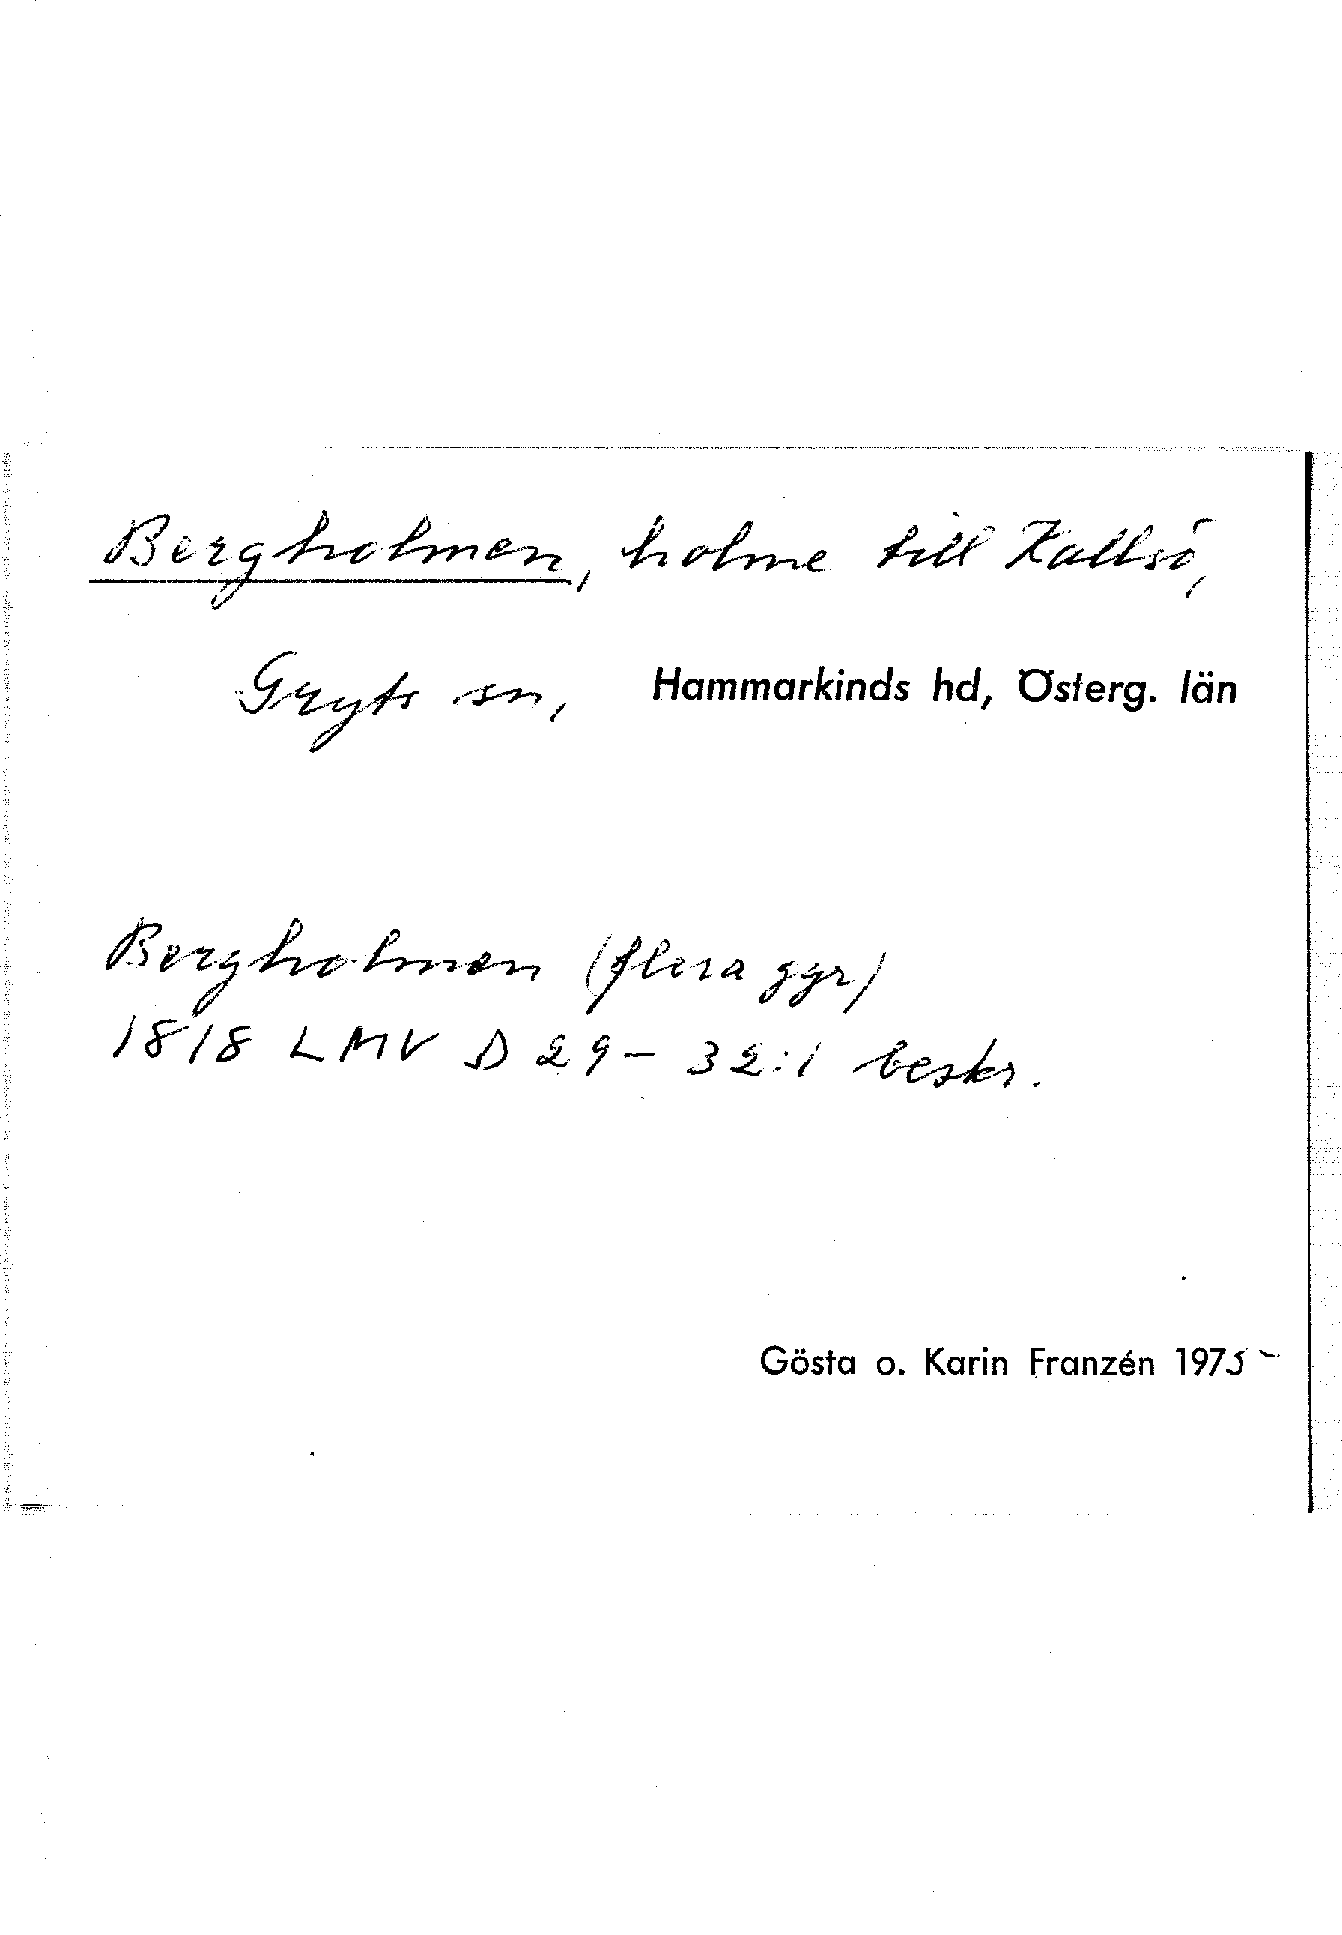 Bergholmen, holme till Kallsö,
Gryts sn, Hammarkinds hd, Österg. län
Bergholmen (flera ggr)
1818 LMV D 29-32:1 beskr.
Gösta o. Karin Franzén 1975